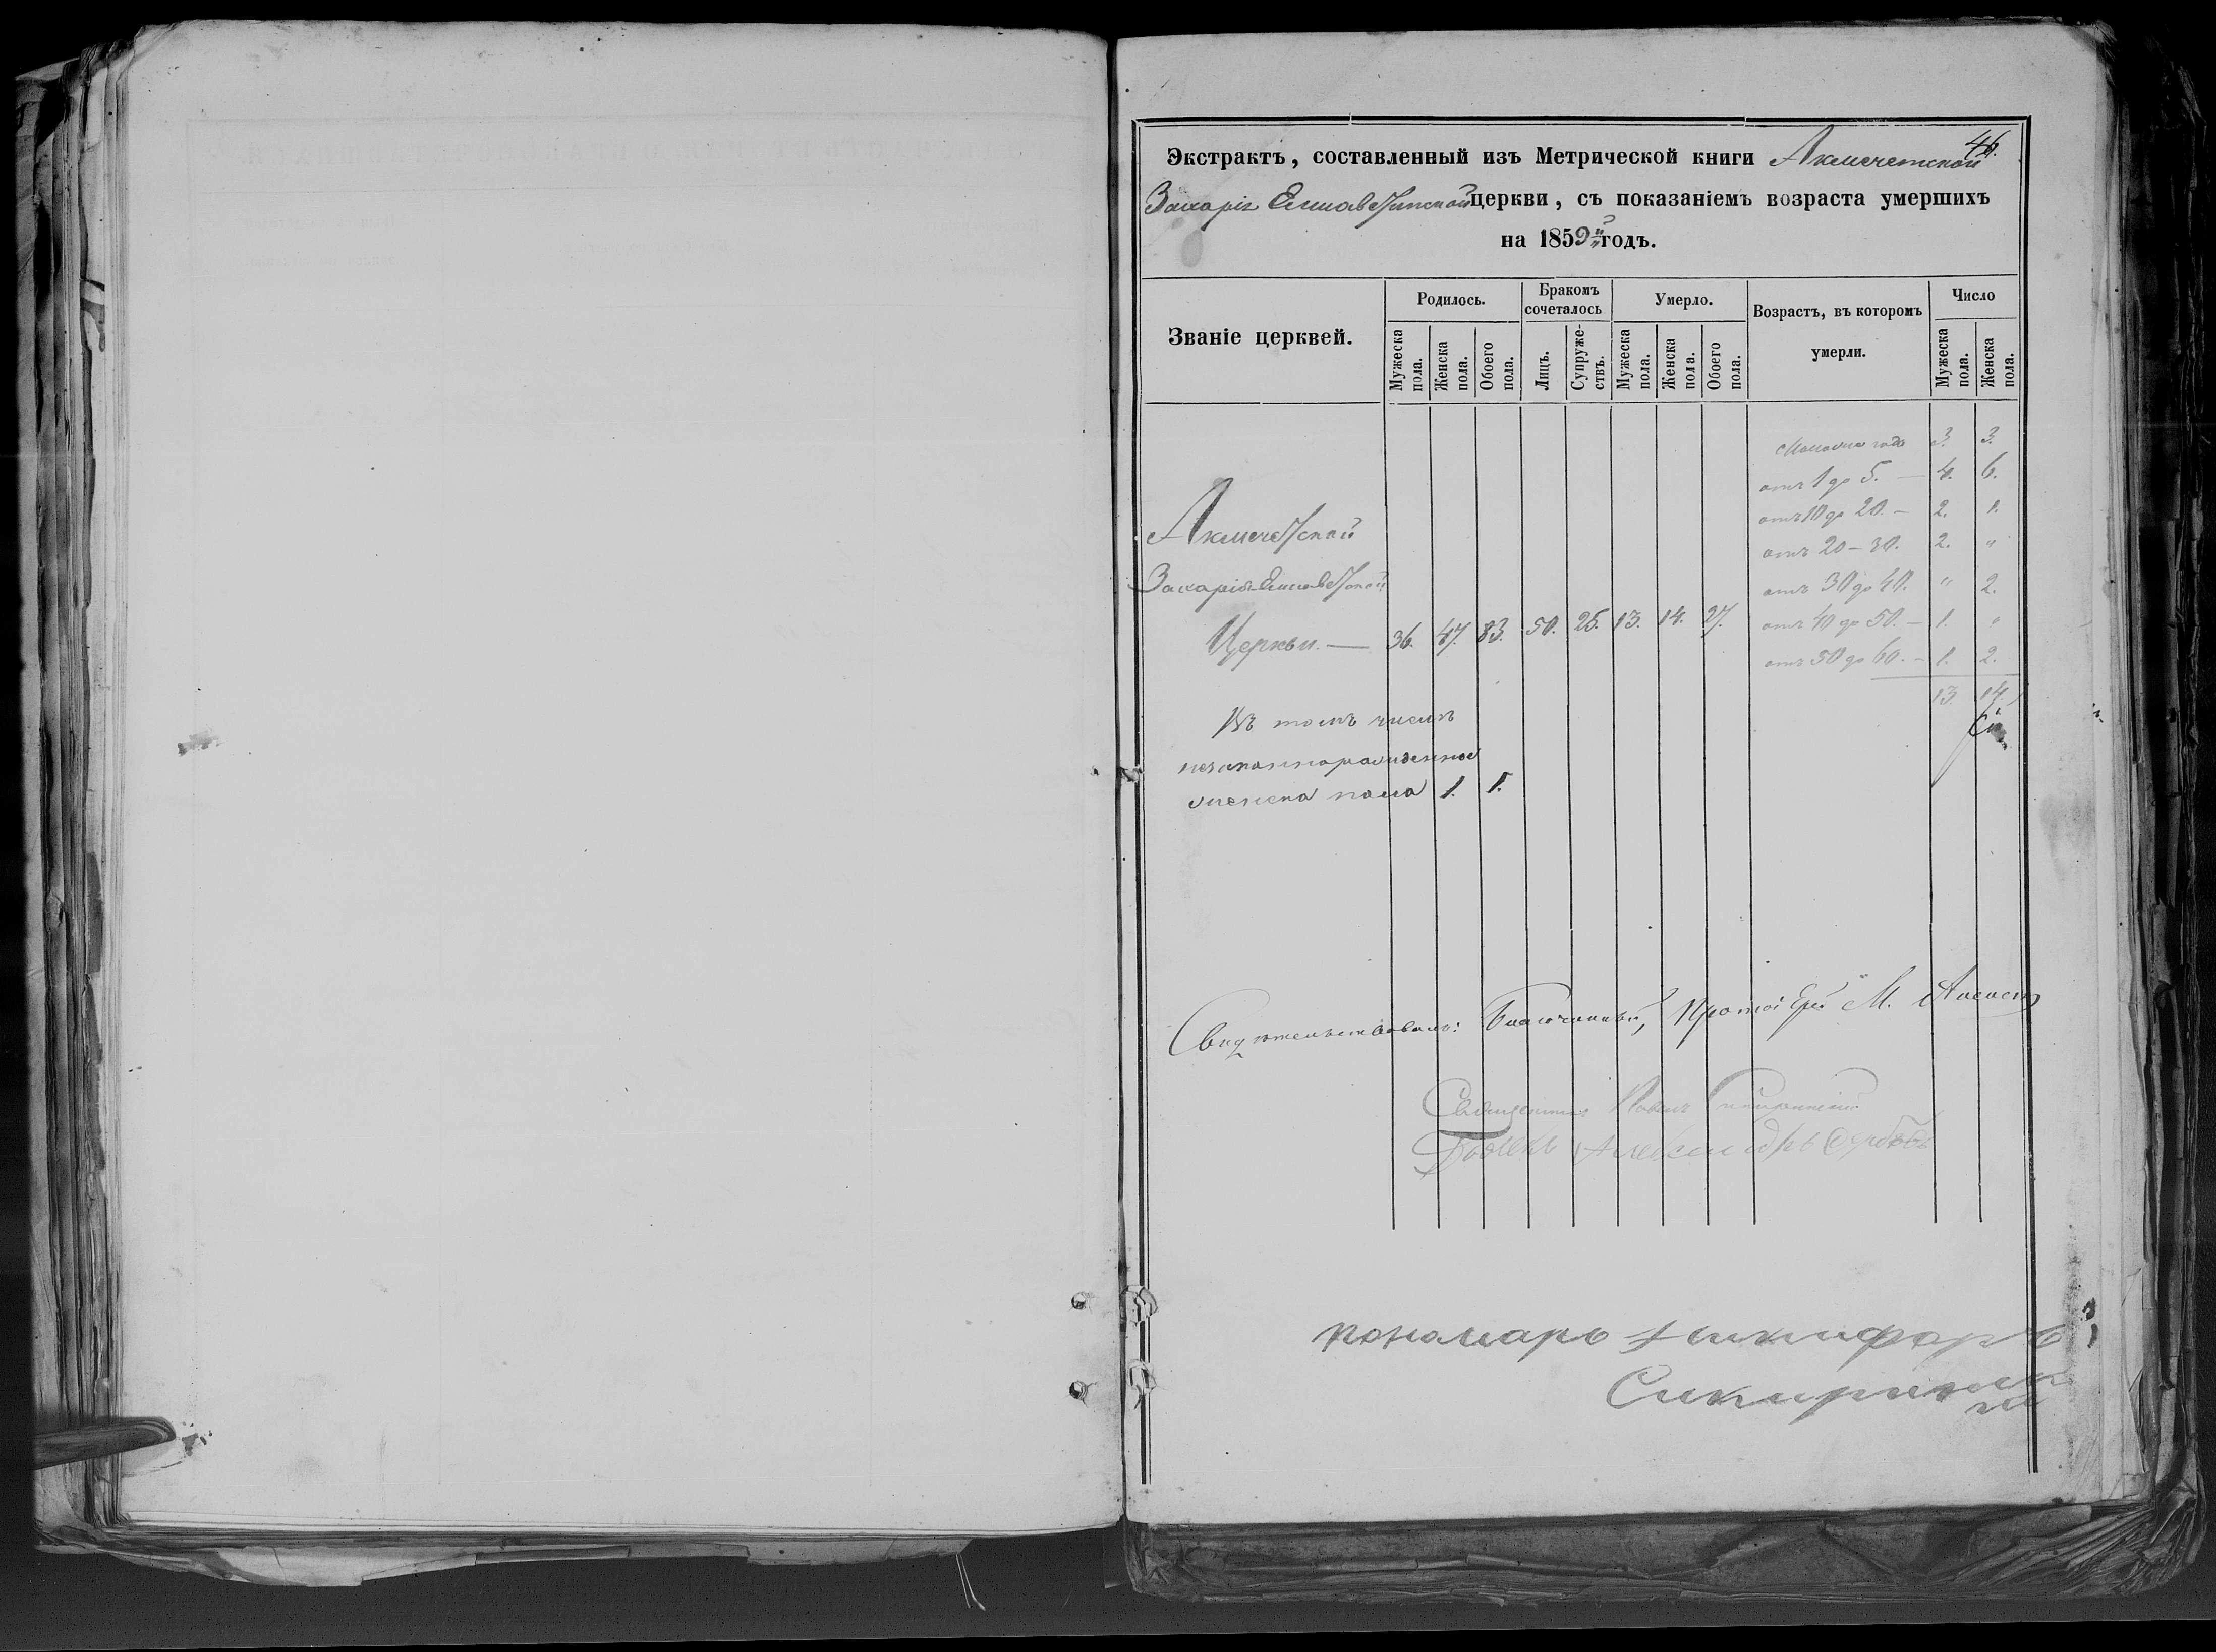 46.
Экстрактъ, составленный изъ Метрической книги Акмечетской
Захаріе Елисаветинской церкви, съ показаніемъ возраста умершихъ
на 1859й годъ.
Званіе церквей.
Родилось.
Бракомъ сочеталось
Умерло.
Возрастъ, въ которомъ умерли.
Число
Мужеска пола.
Женска пола.
Обоего пола.
Лицъ.
Супружествъ.
Мужеска пола.
Женска пола.
Обоего пола.
Мужеска пола.
Женска пола.
года 3. 3.
отъ 1 до 5. — 4. 6.
отъ 10 до 20. — 2. 1.
отъ 20 — 30. 2. "
отъ 30 до 40. " 2.
отъ 40 до 50. — 1. "
отъ 50 до 60. — 1. 2.
13. 14.
Акмечетской
Захаріе-Елисаветской
Церкви. — 36. 47. 83. 50. 25. 13. 14. 27.
Въ томъ числѣ
незаконнорожденное
женска пола 1. 1.
Свидѣтельствовалъ: Благочинный, Протоіерей М.
Священникъ Павелъ
Дьячекъ Александръ
пономарь Никифоръ